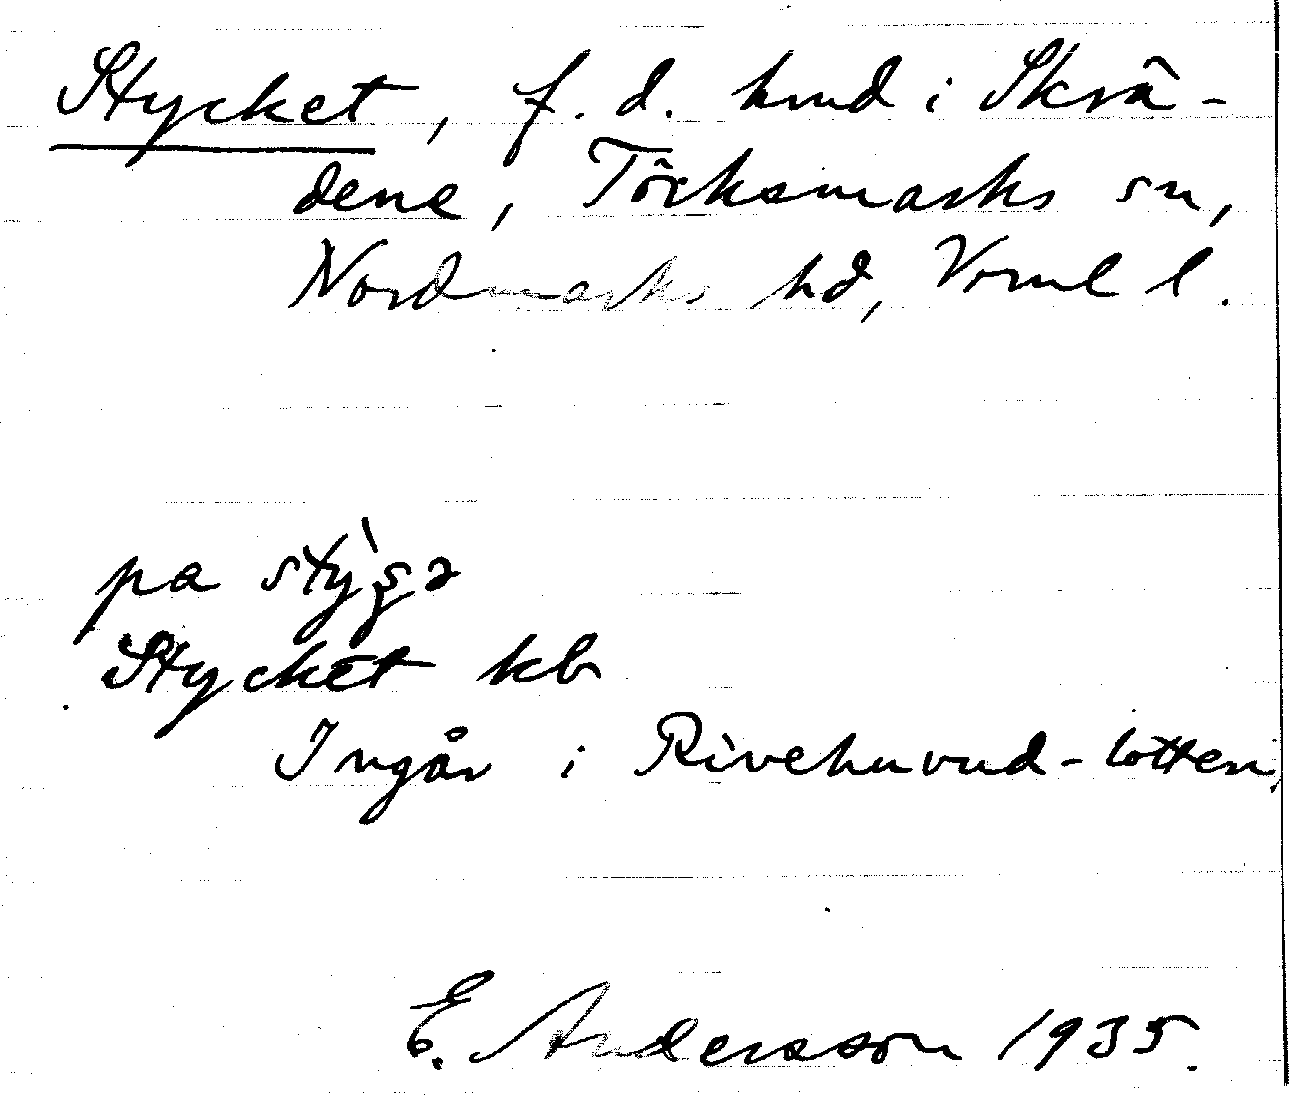 Stycket, f. d. hmd i Skrä-
dene, Töcksmarks sn,
Nordmarks hd, Vrml l.
pa stỳʂə
Stycket kb
Ingår i Rivehuvud-lotten.
E. Andersson 1935.